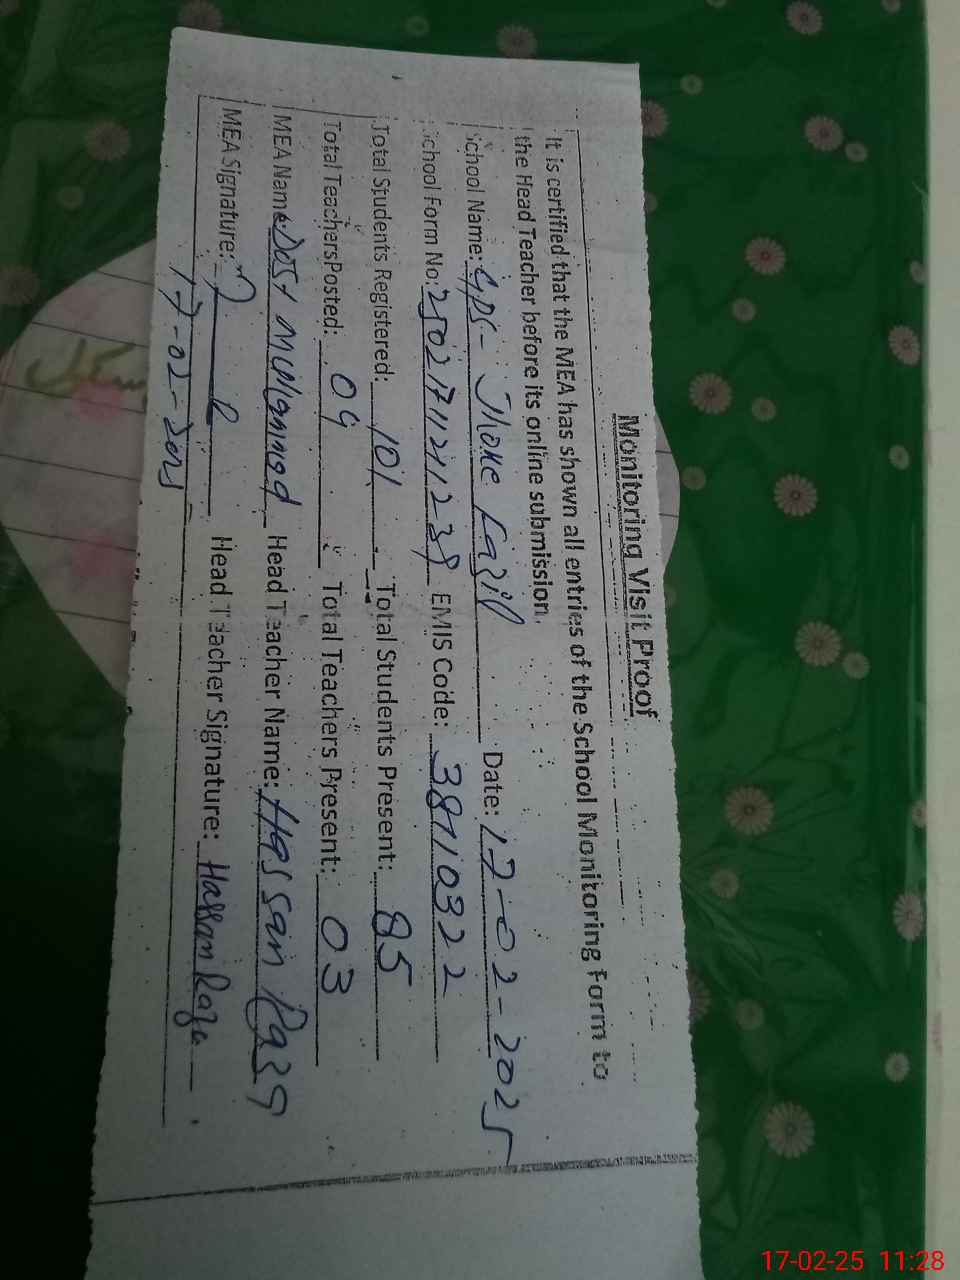 Monitoring Visit Proof
It is certified that the MEA has shown all entries of the School Monitoring Form to
the Head Teacher before its online submission.
School Name: GPS- Jhoke Fazil Date: 17-02-2025
School Form No: EMIS Code: 38710322
Total Students Registered: 101 Total Students Present: 85
Total Teachers Posted: 04 Total Teachers Present: 03
MEA Name: Dost Muhammad Head Teacher Name: Hassan Raza
MEA Signature: Head Teacher Signature: Hassan Raza
17-02-2025
17-02-25 11:28